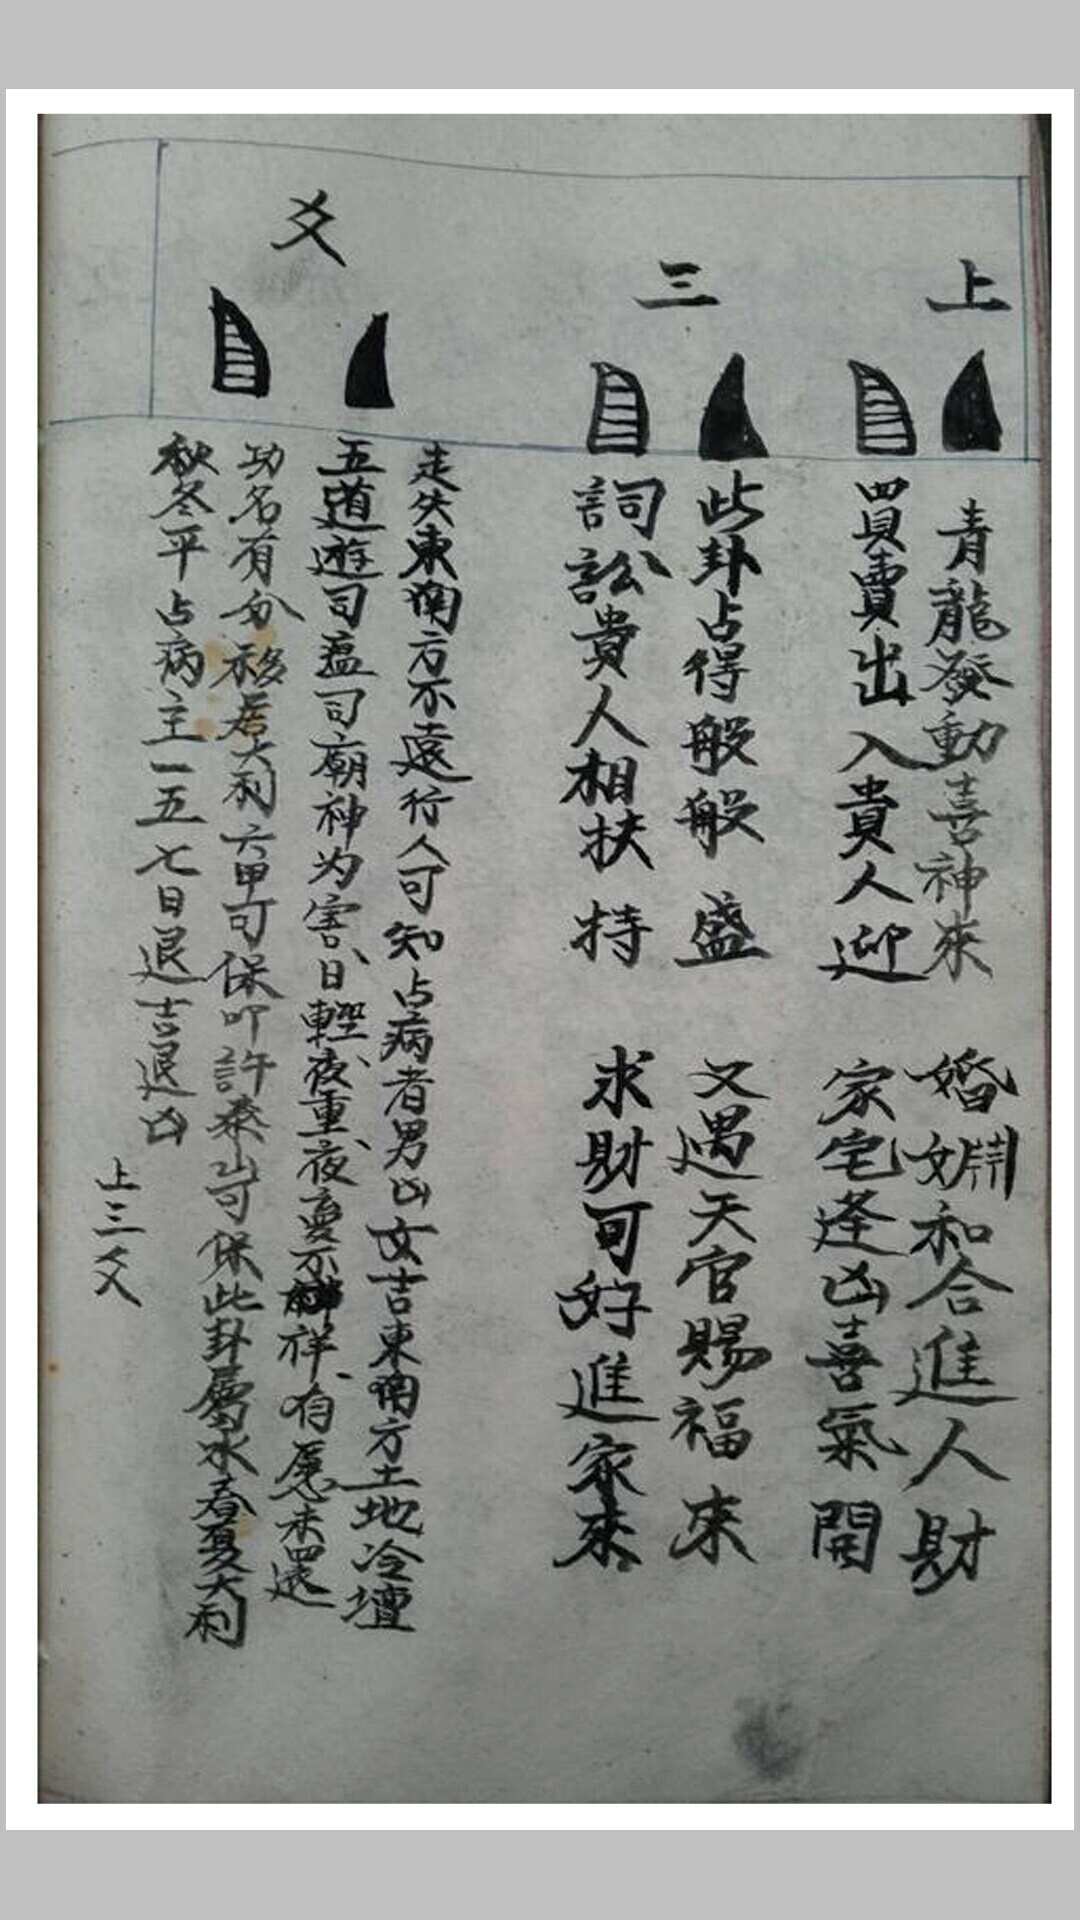 上
三
爻
青龍發動喜神來 婚姻和合進人財
買賣出入貴人迎 家宅逢凶喜氣開
此卦占得般般盛 又遇天官賜福來
詞訟貴人相扶持 求財可好進家來
走失東南方不遠行人可知占病者男凶女吉東南方土地冷壇
五道遊司瘟司廟神为害、日輕、夜重、夜夢不祥、有愿未還
功名有分移居大利六甲可保叩許泰山可保此卦屬水春夏大利
秋冬平占病主一五七日退吉退凶
上三爻